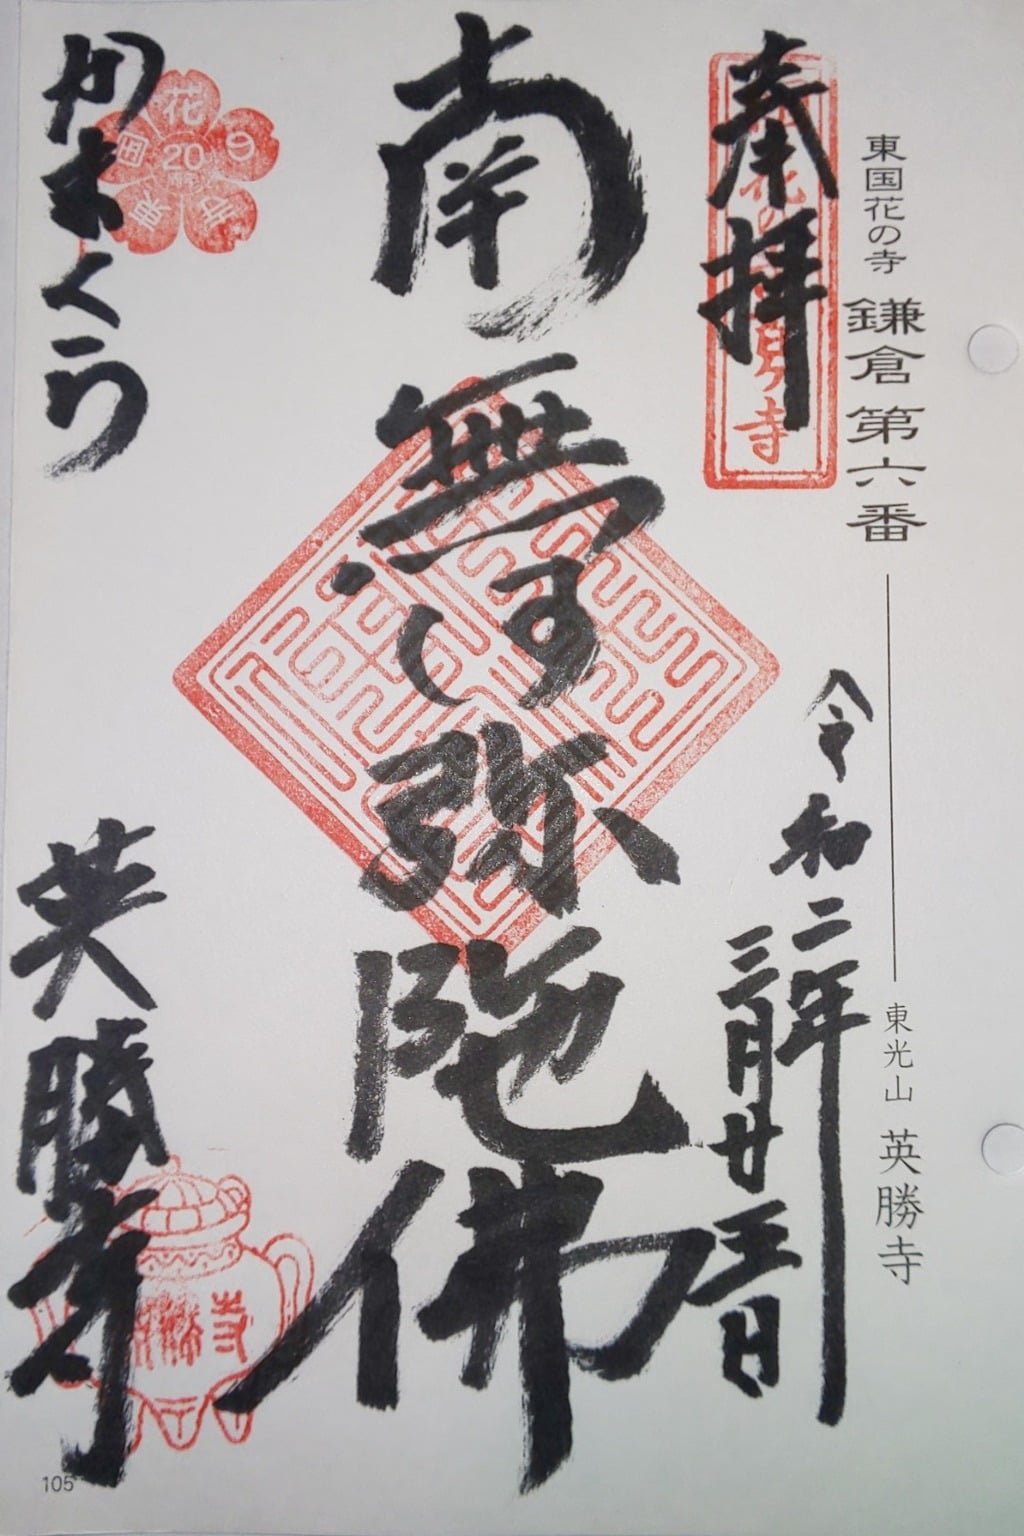 東国花の寺 鎌倉第六番 東光山 英勝寺
奉拝
令和二年
三月廿五日
南無阿弥陀佛
かまくら 英勝寺
東国花の寺
20
105